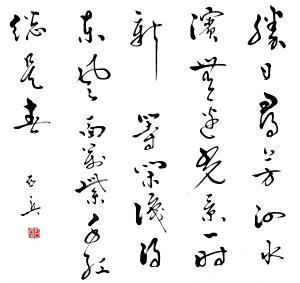 勝日尋芳泗水
濱無邊光景一時
新 等閑識得
東風面萬紫千紅
總是春